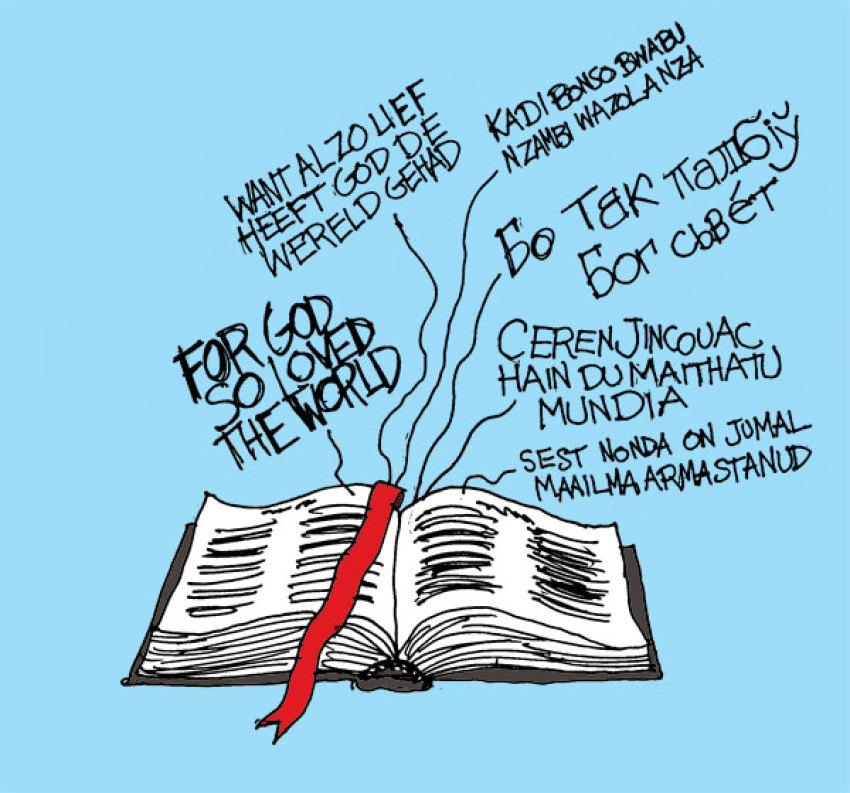 WANT ALZO LIEF
HEEFT GOD DE
WERELD GEHAD
KADI BONSO BWABU
NZAMBI WAZOLA NZA
Бо так палюбіў
Бог сьвет
FOR GOD
SO LOVED
THE WORLD
CEREN JINCOUAC
HAIN DU MAITHATU
MUNDIA
SEST NONDA ON JUMAL
MAAILMA ARMASTANUD